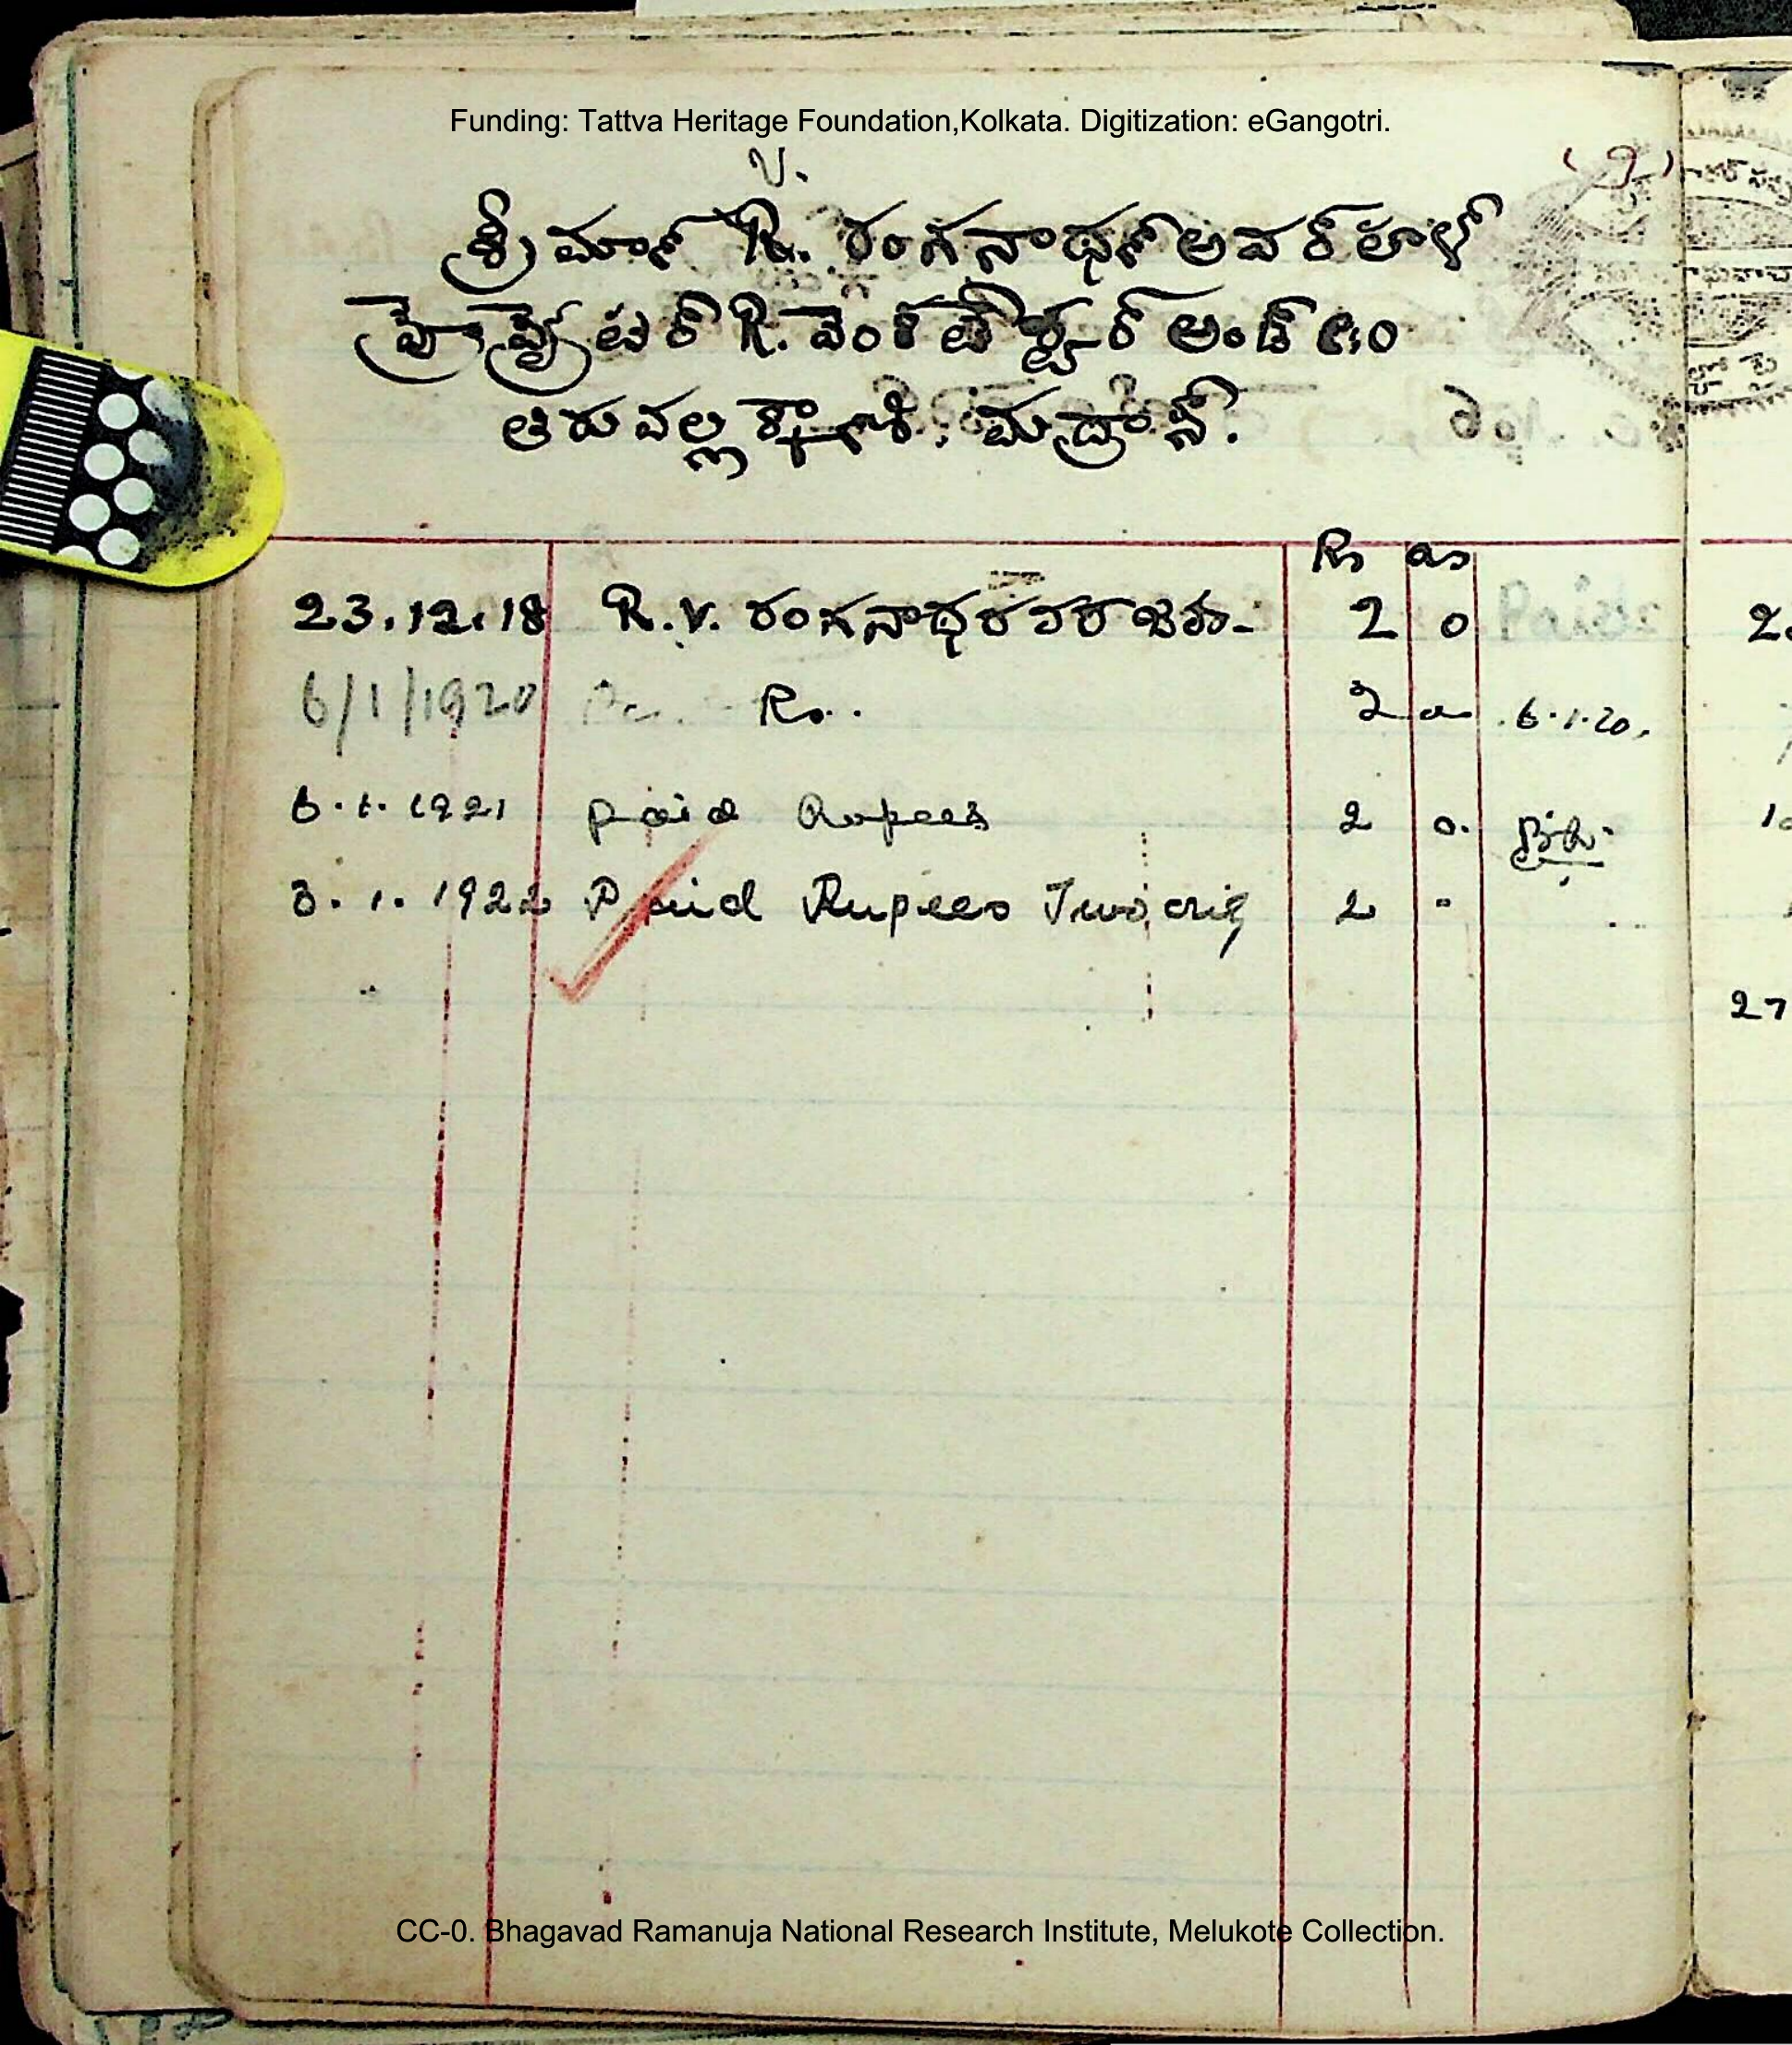 Funding: Tattva Heritage Foundation,Kolkata. Digitization: eGangotri.
V.
శ్రీమాన్ R. రంగనాథన్ అవర్హాళ్
ప్రొప్రైటర్ R. వెంకటేశ్వర్ అండ్ కం
తిరువల్లిక్కేణి. మద్రాస్.
Rs as
23.12.18 R.V. రంగనాథ 2 0
6/1/1920 Rs. 2 0 6.1.20.
6.1.1921 Paid Rupees 2 0.
3.1.1922 Paid Rupees Two only 2 "
CC-0. Bhagavad Ramanuja National Research Institute, Melukote Collection.